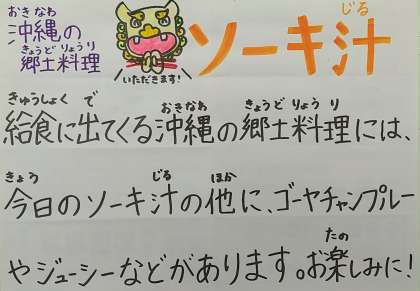 おきなわ
沖縄の
きょうどりょうり
郷土料理
いただきます!
じる
ソーキ汁
きゅうしょく で おきなわ きょうど りょうり
給食に出てくる沖縄の郷土料理には、
きょう じる ほか
今日のソーキ汁の他に、ゴーヤチャンプルー
たの
やジューシーなどがあります。お楽しみに!